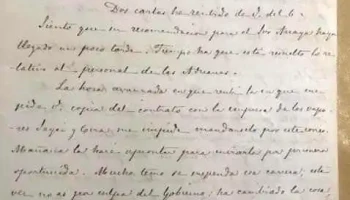 Dos cartas he recibido de U. del 6.
Siento que su recomendacion para el Sor Araya haya
llegado un poco tarde. Tiempo ha que está resuelto lo re-
lativo al personal de las Aduanas.
La hora avanzada en que recibí la en que me
pide U. copia del contrato con la empresa de los vapo-
res me impide mandarsela por este correo.
Mañana la haré aprontar para enviarla por primera
oportunidad. Mucho temo se suspenda esa carrera; esta
vez no es por culpa del Gobierno; ha cambiado la cosa,